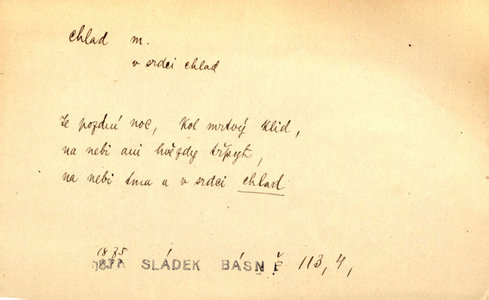 chlad m.
v srdci chlad
Je pozdní noc, kol mrtvý klid,
na nebi ani hvězdy třpyt,
na nebi tma a v srdci chlad
1875
SLÁDEK BÁSNĚ 113, 4,